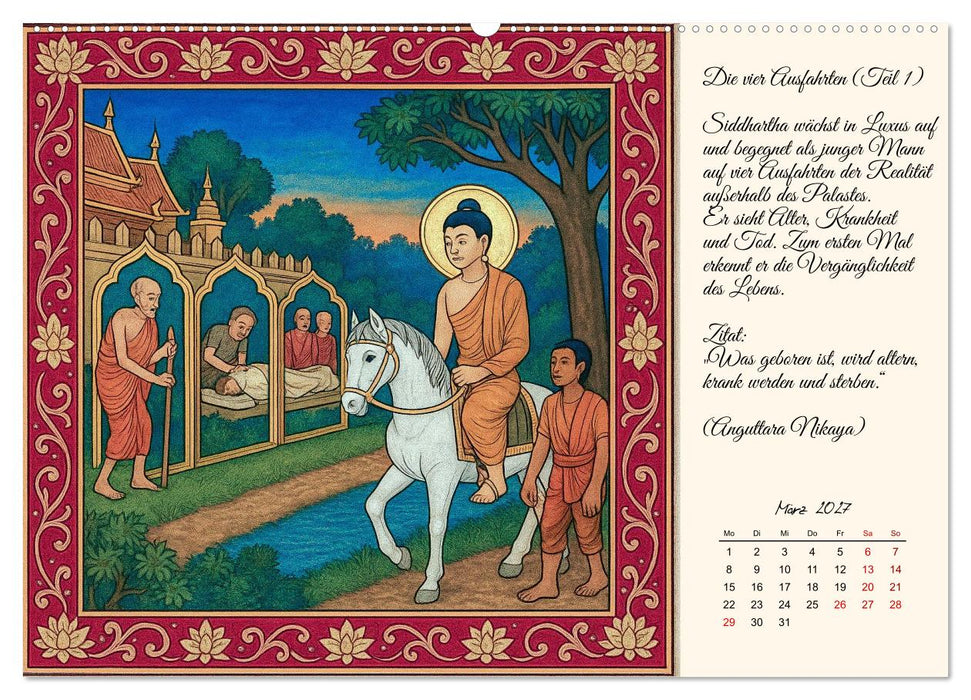 Die vier Ausfahrten (Teil 1)
Siddhartha wächst in Luxus auf
und begegnet als junger Mann
auf vier Ausfahrten der Realität
außerhalb des Palastes.
Er sieht Alter, Krankheit
und Tod. Zum ersten Mal
erkennt er die Vergänglichkeit
des Lebens.
Zitat:
„Was geboren ist, wird altern,
krank werden und sterben.“
(Anguttara Nikaya)
März 2027
Mo Di Mi Do Fr Sa So
1 2 3 4 5 6 7
8 9 10 11 12 13 14
15 16 17 18 19 20 21
22 23 24 25 26 27 28
29 30 31